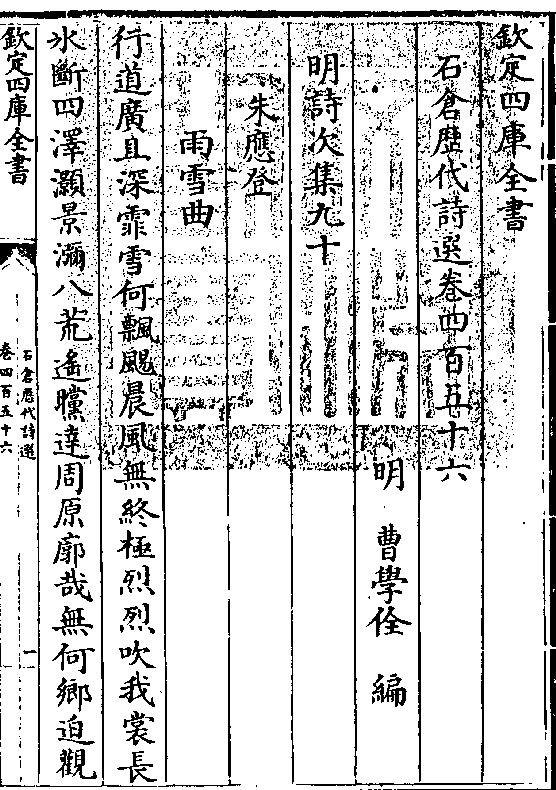 欽定四庫全書
石倉歴代詩選卷四百五十六
明 曹學佺 編
明詩次集九十
朱應登
雨雪曲
行道廣且深霏雪何飄颺晨風無終極烈烈吹我裳長
氷斷四澤灝景瀰八荒遙曭達周原廓哉無何鄉迫觀
欽定四庫全書
石倉歴代詩選
卷四百五十六
一